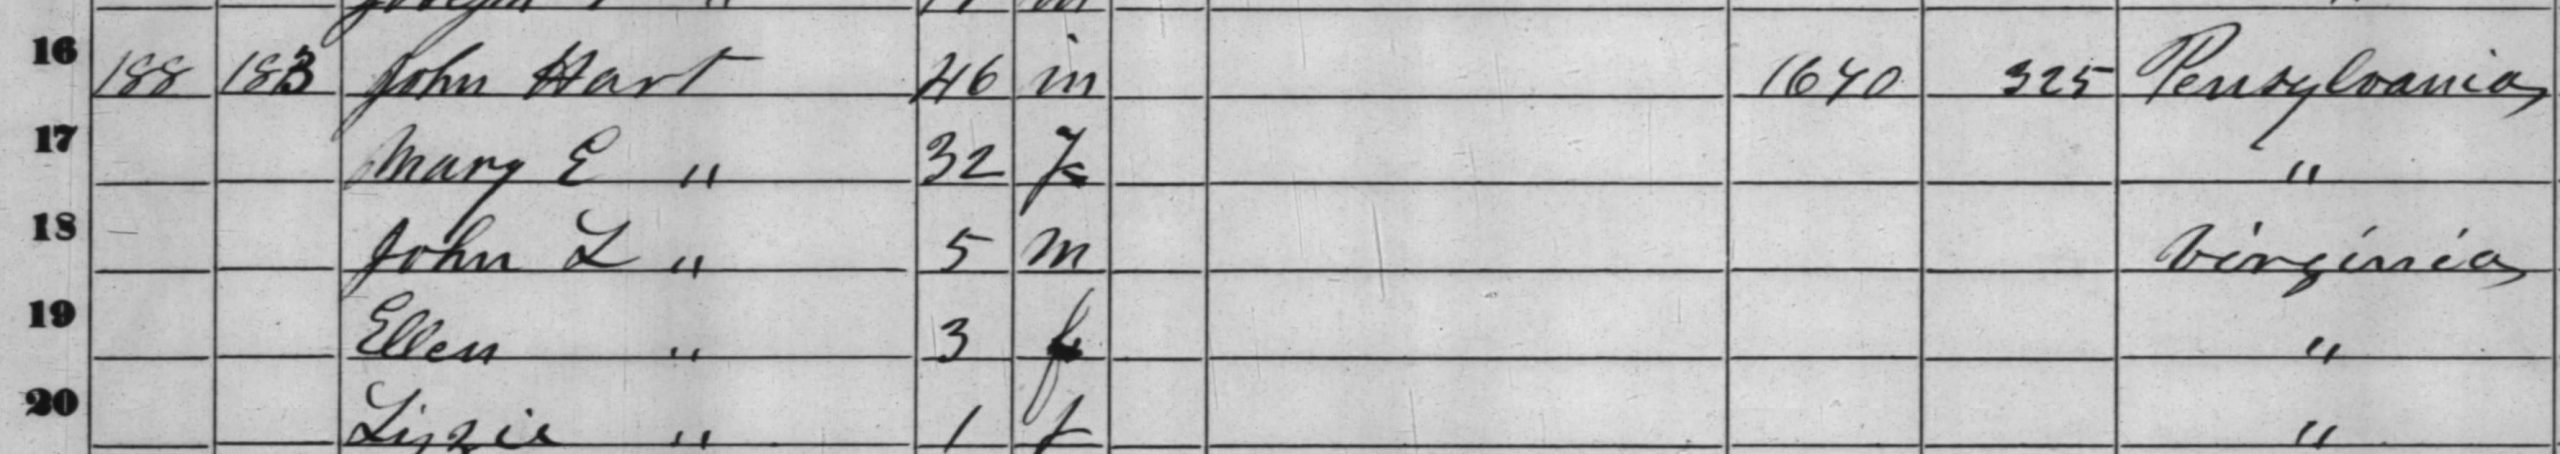 16 188 183 John Hart 46 m 1640 325 Pensylvania
17 Mary E " 32 f "
18 John L " 5 m Virginia
19 Ellen " 3 f "
20 Lizzie " 1 f "